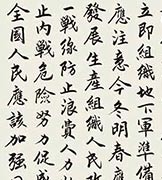 立即組織地下軍準備
應注意今冬明春應
發展生産組織人民
一戰綫防止浪費人力
止内戰危險努力促成
全國人民應該加强